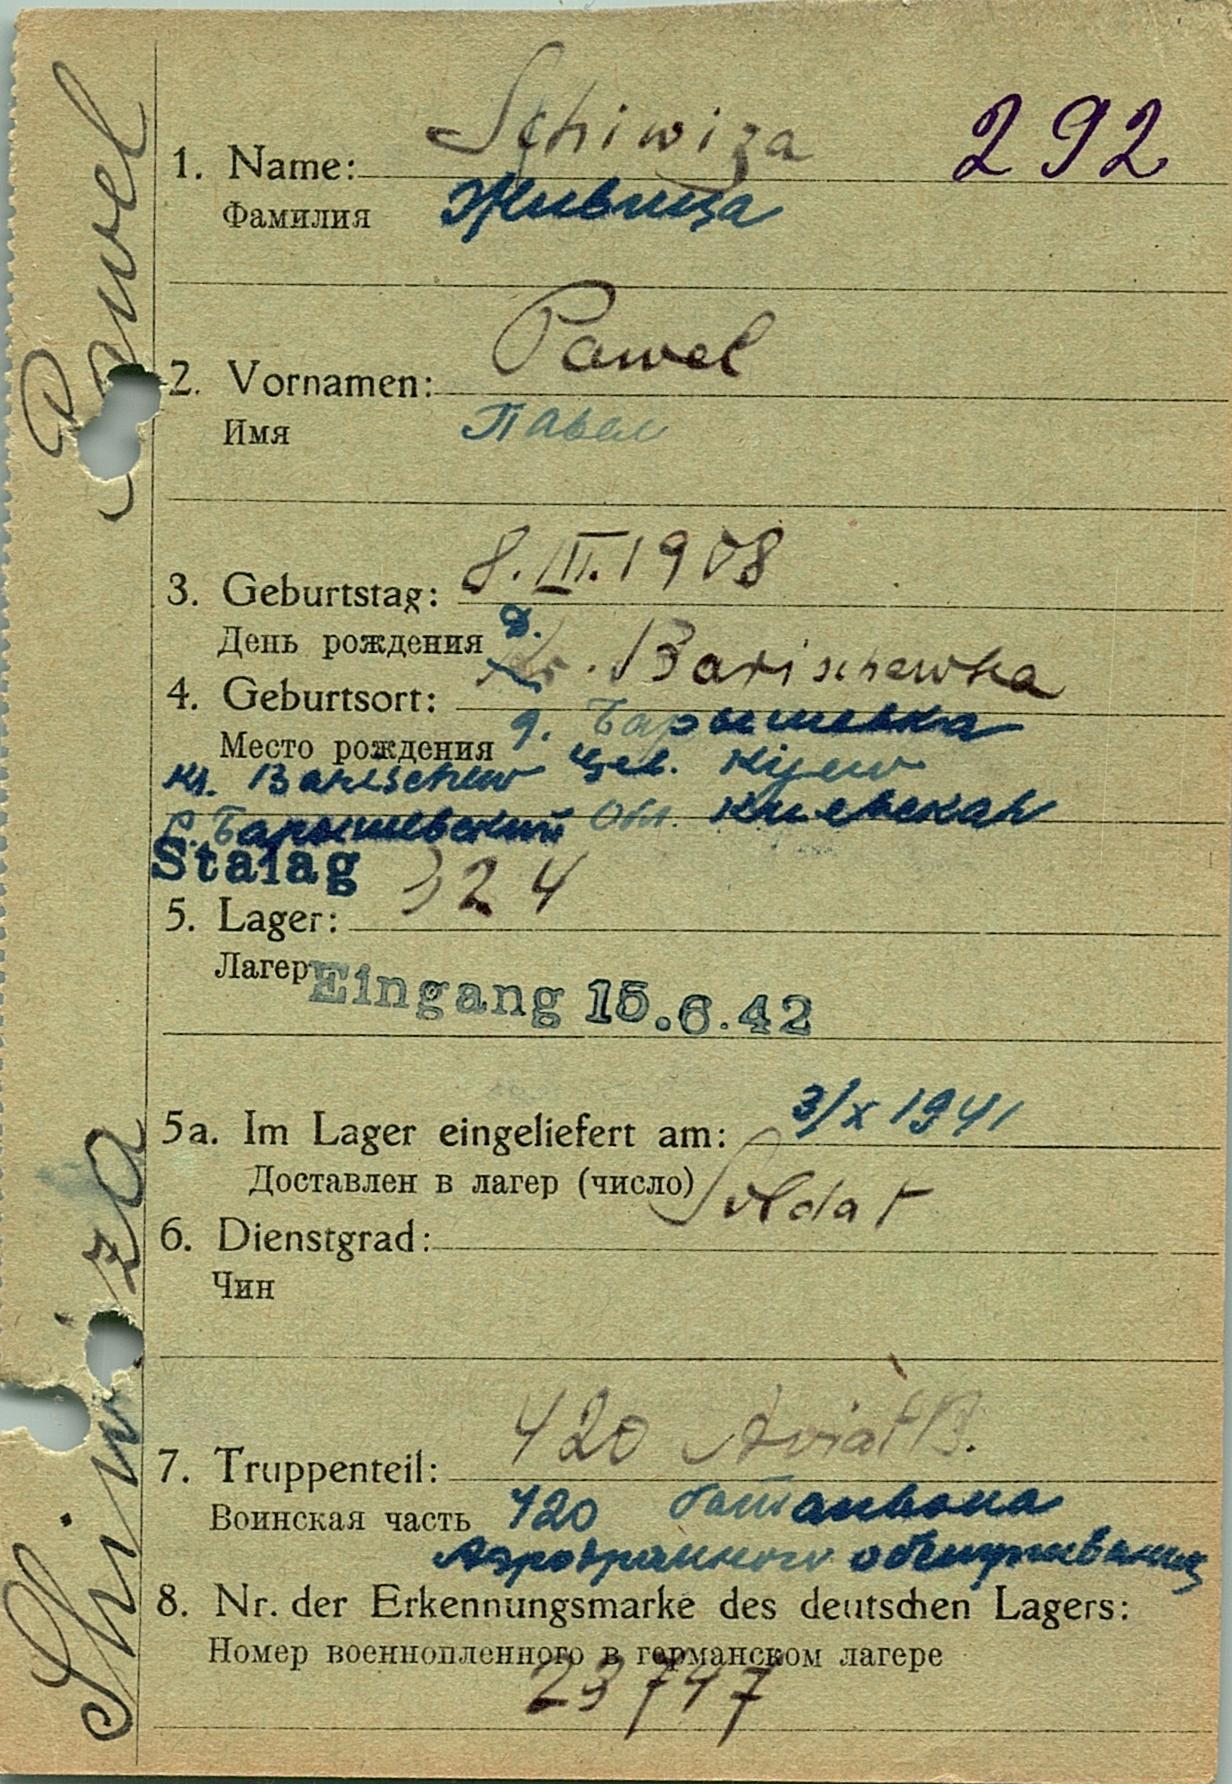 Pawel
Shiwiza
292
Schiwiza
1. Name:
Фамилия Живица
Pawel
2. Vornamen:
Имя Павел
8.III.1908
3. Geburtstag:
День рождения Д.
Barischewka
4. Geburtsort:
Место рождения д. Барышевка
Kr. Barischew Kijew
Барышевский Обл. Киевская
Stalag 324
5. Lager:
Лагерь
Eingang 15.6.42
5a. Im Lager eingeliefert am: 3/X 1941
Доставлен в лагер (число)
Soldat
6. Dienstgrad:
Чин
420 Aviat B.
7. Truppenteil:
Воинская часть 420 баталиона
Аэродромного обслуживания
8. Nr. der Erkennungsmarke des deutschen Lagers:
Номер военнопленного в германском лагере
23747